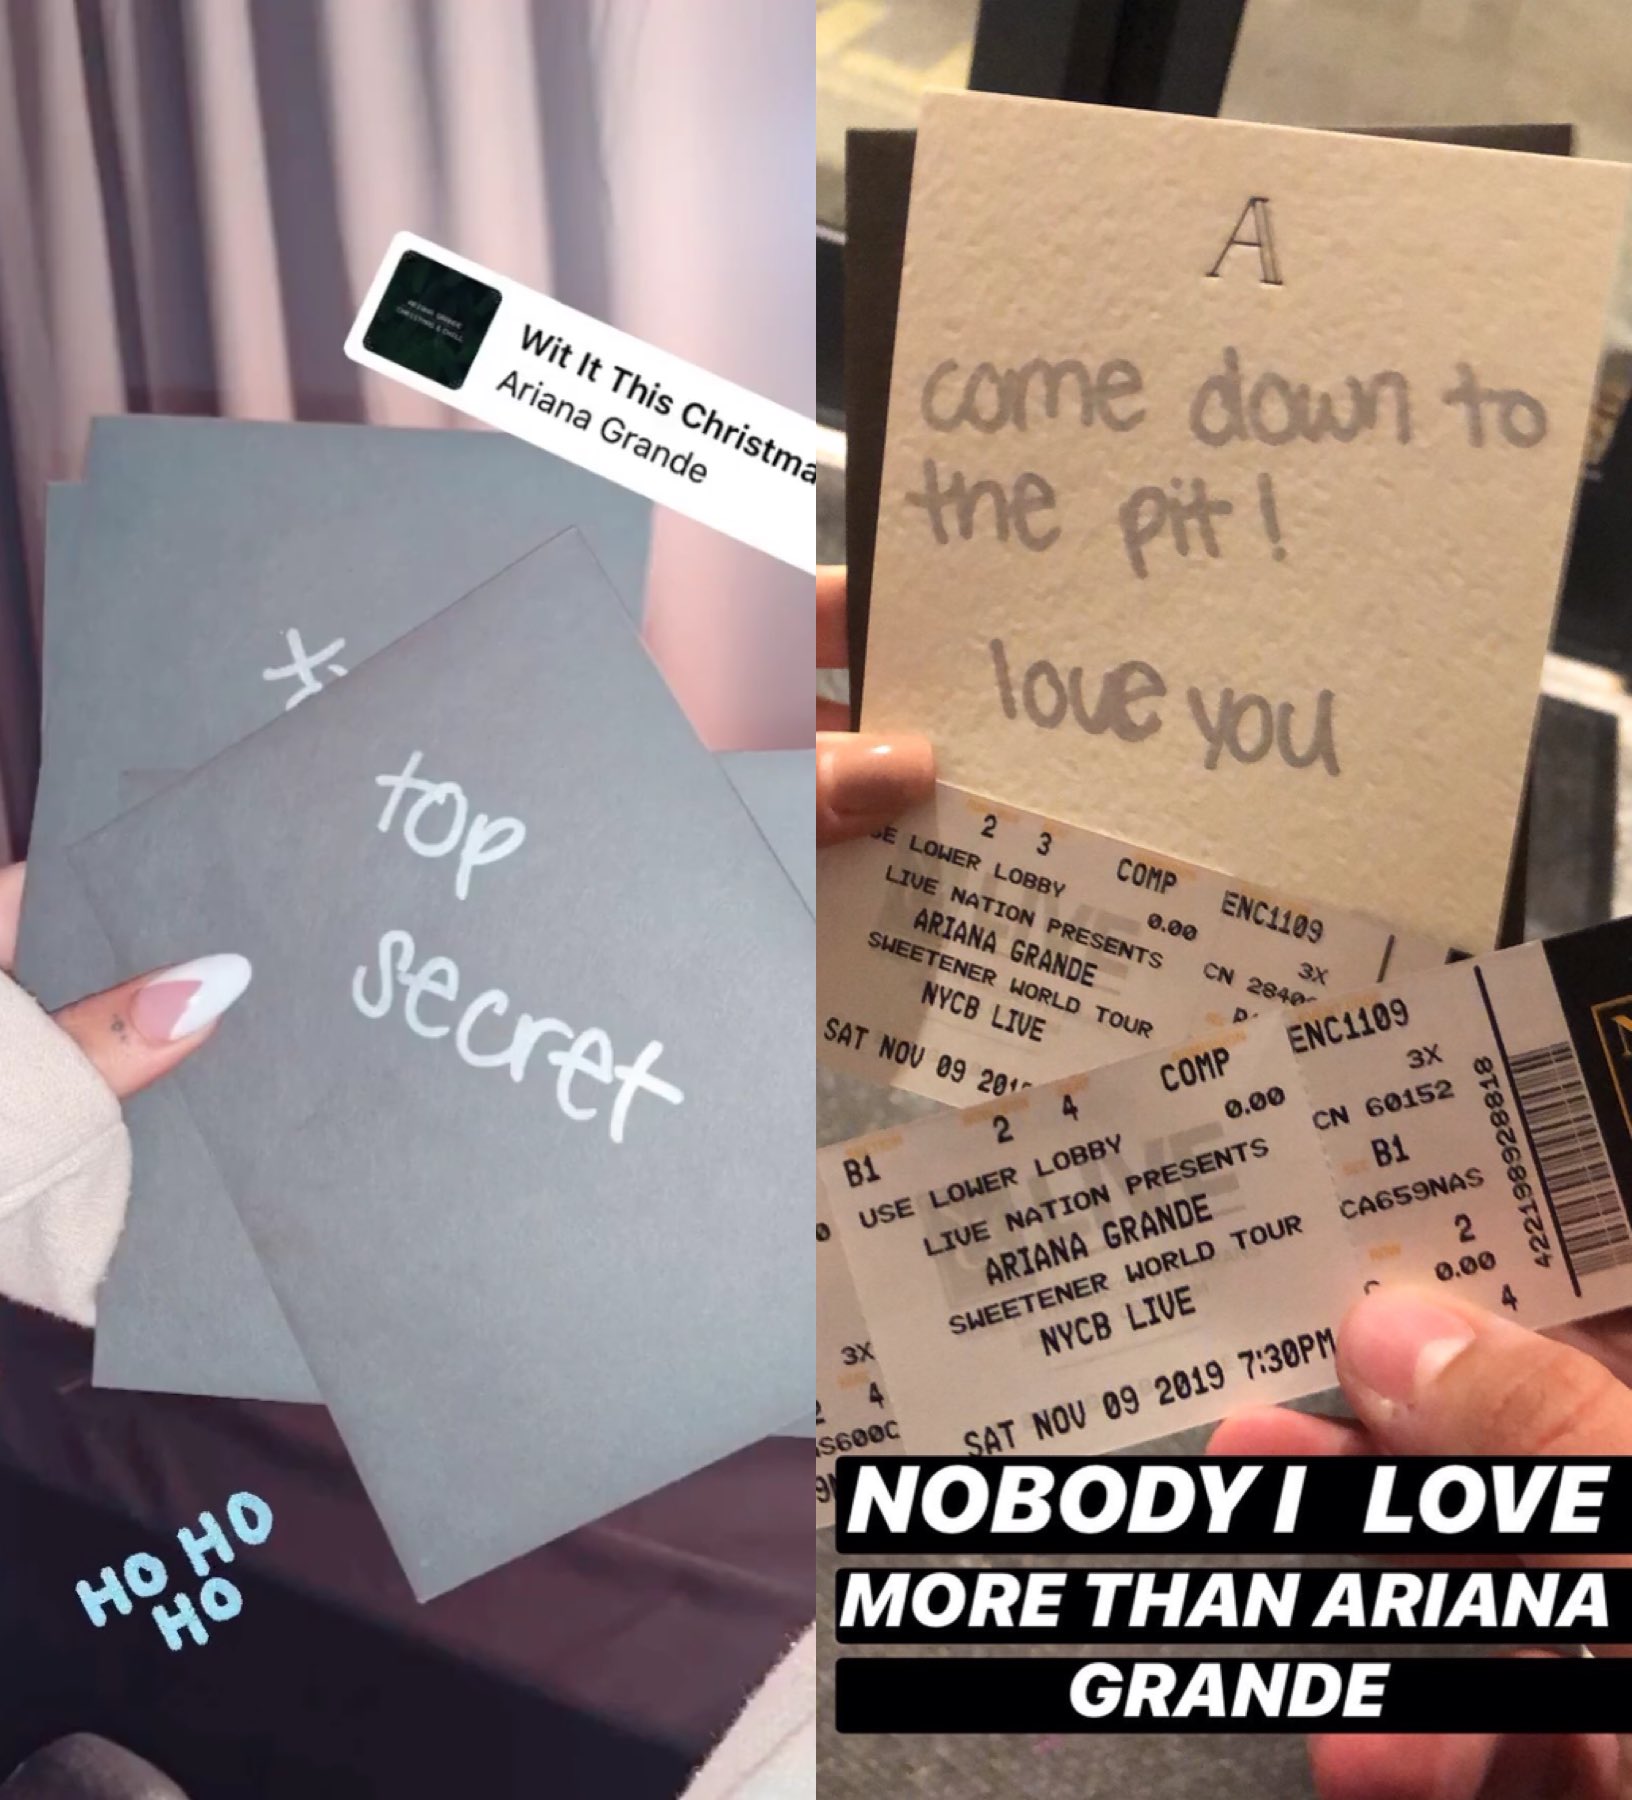 Wit It This Christma
Ariana Grande
top
secret
HO HO
HO
A
come down to
the pit!
love you
2 3 COMP ENC1109
SE LOWER LOBBY 0.00
LIVE NATION PRESENTS 3X
ARIANA GRANDE CN 2840
SWEETENER WORLD TOUR
NYCB LIVE
SAT NOV 09 201
B1 2 4 COMP ENC1109
USE LOWER LOBBY 0.00 3X
LIVE NATION PRESENTS CN 60152
ARIANA GRANDE B1
SWEETENER WORLD TOUR CA659NAS
NYCB LIVE 2
SAT NOV 09 2019 7:30PM 0.00
4
422198928818
3X
4
S600C
NOBODY I LOVE
MORE THAN ARIANA
GRANDE